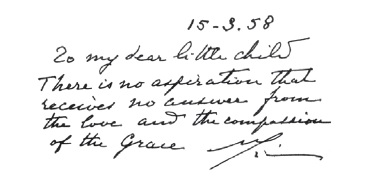 15-3.58
To my dear little child
There is no aspiration that
receives no answer from
the love and the compassion
of the Grace